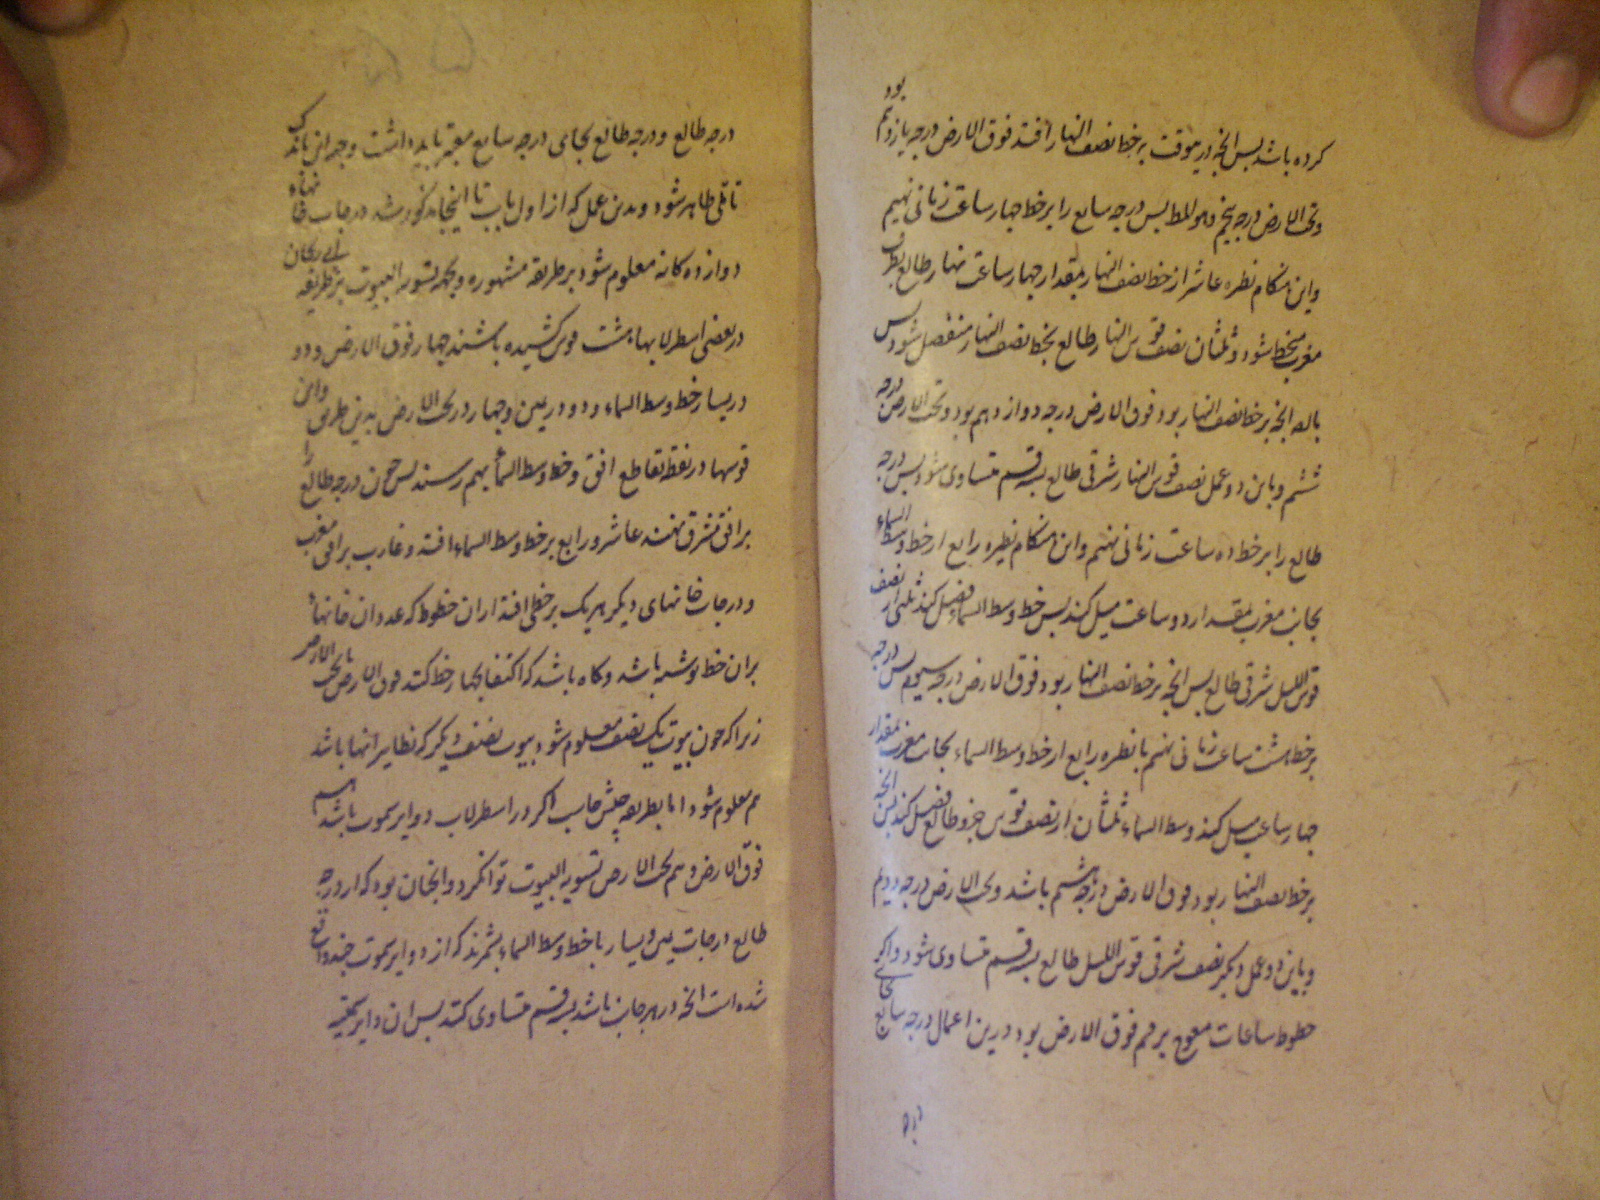 کرده باشد پس آنچه درینوقت بر خط نصف النهار افتد فوق الارض درجه یازدهم بود
و تحت الارض درجه پنجم و هو المط پس درجه سابع را بر خط چهار ساعت زمانی نهیم
و این هنگام نظیره عاشر از خط نصف النهار بمقدار چهار ساعت نهار طالع بطرف
مغرب منحط شود و ثلثان نصف قوس النهار طالع بخط نصف النهار منفصل شود پس
آنچه بر خط نصف النهار بود فوق الارض درجه دوازدهم بود و تحت الارض درجه
ششم و باین دو عمل نصف قوس النهار شرقی طالع بسه قسم متساوی شود پس درجه
طالع را بر خط ده ساعت زمانی نهیم و این هنگام نظیره رابع از خط وسط السماء
بجانب مغرب بمقدار دو ساعت میل کند پس خط وسط السماء فصل کند ثلثی از نصف
قوس اللیل شرقی طالع پس آنچه بر خط نصف النهار بود فوق الارض درجه سیوم پس درجه
بر خط هشت ساعت زمانی نهیم تا نظیره رابع از خط وسط السماء بجانب مغرب بمقدار
چهار ساعت میل کند و وسط السماء ثلثان از نصف قوس جزو طالع فصل کند پس آنچه
بر خط نصف النهار بود فوق الارض درجه هشتم باشد و تحت الارض درجه دویم
و باین دو عمل دیگر نصف شرقی قوس اللیل طالع بسه قسم متساوی شود و اگر
خطوط ساعات معوج مرقم فوق الارض بود درین اعمال درجه سابع بجای
درجه
درجه طالع و درجه طالع بجای درجه سابع معتبر باید داشت و وجه این باندک
تاملی ظاهر شود و بدین عمل که از اول باب تا اینجا مذکور شد درجات خانهاء
دوازده کانه معلوم شود بر طریقه مشهوره و بجهة تسویه البیوت بر طریقه
در بعضی اسطرلابها هشت قوس کشیده باشند چهار فوق الارض و دو
در یسار خط وسط السماء و دو در یمین و چهار در تحت الارض بدین طریق و این
قوسها در نقطه تقاطع افق و خط وسط السماء بهم رسند پس چون درجه طالع را
بر افق مشرق نهند عاشر و رابع بر خط وسط السماء افتد و غارب بر افق مغرب
و درجات خانهای دیگر هریک بر خطی افتد از ان خطوط که عدد ان خانها
بران خط نوشته باشد و گاه باشد که اکتفا بچهار خط کنند فوق الارض یا تحت الارض
زیرا که چون بیوت یک نصف معلوم شود بیوت نصف دیگر که نظایر آنها باشد
هم معلوم شود اما بطریقه حبش حاسب اگر در اسطرلاب دوایر سموت باشد هم
فوق الارض و هم تحت الارض تسویه البیوت توان کرد و آنچنان بود که از درجه
طالع درجات یمین و یسار با خط وسط السماء بشمرند که از دوایر سموت چند واقع
شده است آنچه در هر جانب باشد بسه قسم متساوی کنند پس ان دایر